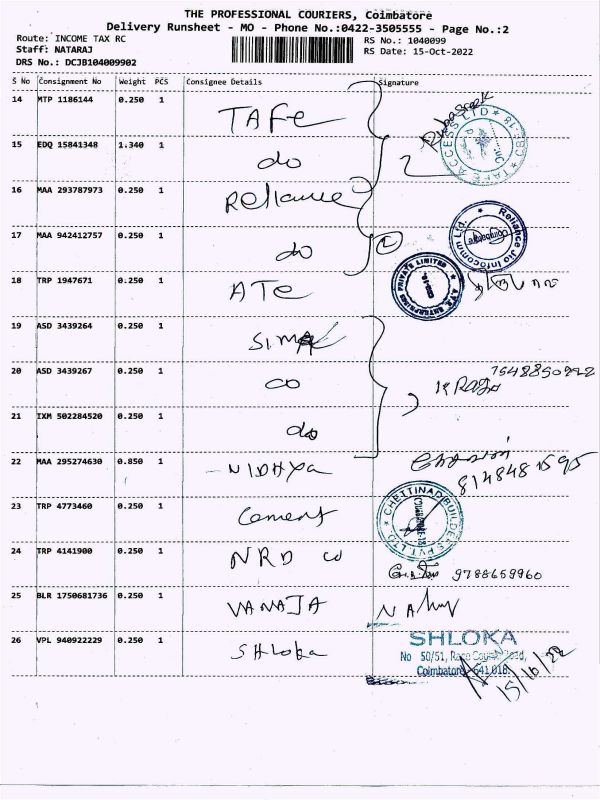 THE PROFESSIONAL COURIERS, Coimbatore
Delivery Runsheet - MO - Phone No.:0422-3505555 - Page No.:2
Route: INCOME TAX RC
RS No.: 1040099
Staff: NATARAJ
RS Date: 15-Oct-2022
DRS No.: DCJB104009902
S No Consignment No Weight PCS Consignee Details Signature
14 MTP 1186144 0.250 1 TAFe
15 EDQ 15841348 1.340 1 do
TAFE ACCESS LTD CBE-18
16 MAA 293787973 0.250 1 Reliance
17 MAA 942412757 0.250 1 do
Reliance Jio Infocomm Ltd. Coimbatore
18 TRP 1947671 0.250 1 ATe
A.T.E. ENTERPRISES PRIVATE LIMITED CBE-18
19 ASD 3439264 0.250 1 SIMA
20 ASD 3439267 0.250 1 co
21 IXM 502284520 0.250 1 do
22 MAA 295274630 0.850 1 NIDHYA
23 TRP 4773460 0.250 1 Cement
CHETTINAD BUILDERS PVT. LTD COIMBATORE-18
24 TRP 4141900 0.250 1 NRD co
9788659960
25 BLR 1750681736 0.250 1 VANAJA
26 VPL 940922229 0.250 1 Shloka
SHLOKA
No 50/51, Race Course Road,
Coimbatore - 641 018.
15/10/22